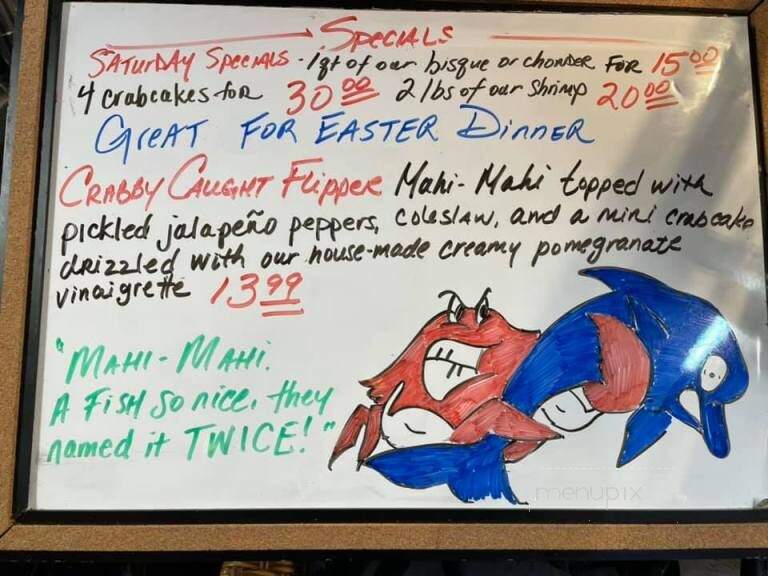 Specials
Saturday Specials - 1qt of our bisque or chowder for 15.00
4 crabcakes for 30.00 2 lbs of our shrimp 20.00
Great for Easter Dinner
Crabby Caught Flipper Mahi-Mahi topped with
pickled jalapeño peppers, coleslaw, and a mini crabcake
drizzled with our house-made creamy pomegranate
vinaigrette 13.99
"Mahi-Mahi.
A fish so nice, they
named it TWICE!"
menupix